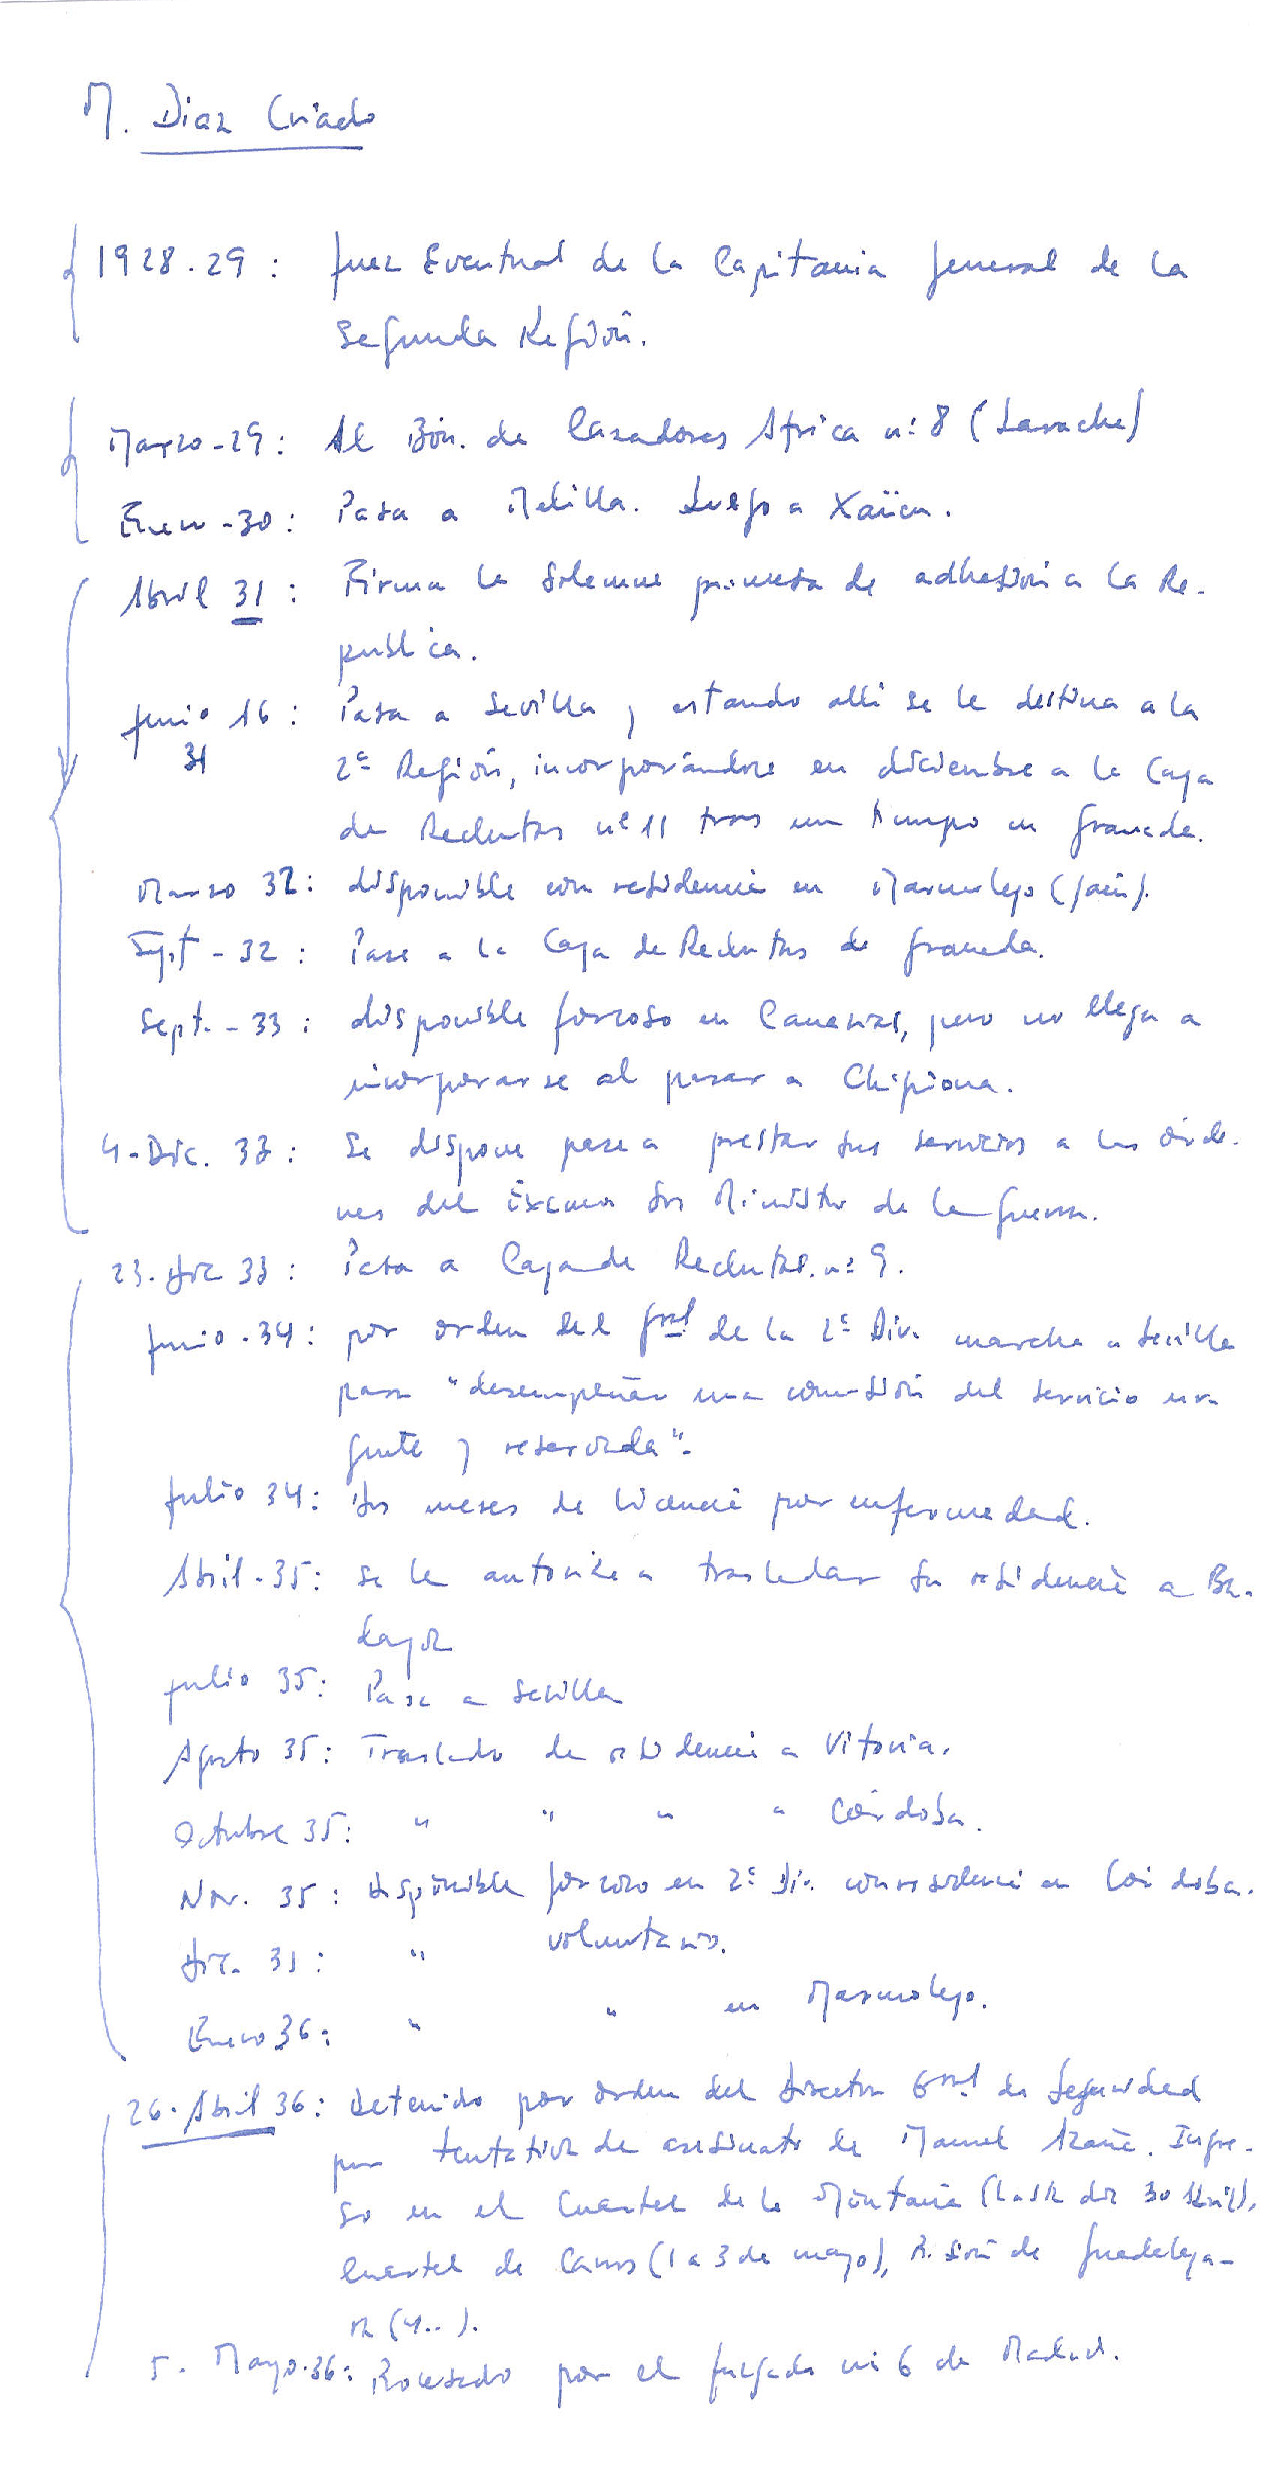 M. Diaz Criado
1928-29: Juez Eventual de la Capitania General de la
Segunda Región.
Marzo-29: Al Bón. de Cazadores Africa nº 8 (Larache)
Enero-30: Pasa a Melilla. Luego a Xaüen.
Abril 31: Firma la solemne promesa de adhesión a la Re-
publica.
Junio 16: Pasa a Sevilla y estando alli se le destina a la
31
2ª Región, incorporándose en diciembre a la Caja
de Reclutas nº 11 tras un tiempo en Granada.
Marzo 32: disponible con residencia en Marmolejo (Jaén).
Sept - 32: Pase a la Caja de Reclutas de Granada.
Sept. - 33: disponible forzoso en Canarias, pero no llega a
incorporarse al pasar a Chipiona.
4-Dic. 33: Se dispone pase a prestar sus servicios a las órde-
nes del Excmo Sr Ministro de la Guerra.
23-Dic 33: Pasa a Caja de Reclutas nº 9.
Junio-34: por orden del Gral de la 2ª Div. marcha a Sevilla
para "desempeñar una comisión del servicio ur-
gente y reservada".
Julio 34: Dos meses de licencia por enfermedad.
Abril-35: se le autoriza a trasladar su residencia a Ba-
dajoz
Julio 35: Pasa a Sevilla
Agosto 35: Traslado de residencia a Vitoria.
Octubre 35: " " " " Córdoba.
Nov. 35: disponible forzoso en 2ª Div. con residencia en Córdoba.
Dic. 35: " voluntario.
Enero 36: " " en Marmolejo.
26-Abril 36: Detenido por orden del Director Gral de Seguridad
por tentativa de asesinato de Manuel Azaña. Ingre-
so en el Cuartel de la Montaña (hasta dia 30 Abril),
Cuartel de (1 a 3 de mayo), Prisión de Guadalaja-
ra (4..).
5- Mayo-36: Procesado por el Juzgado nº 6 de Madrid.